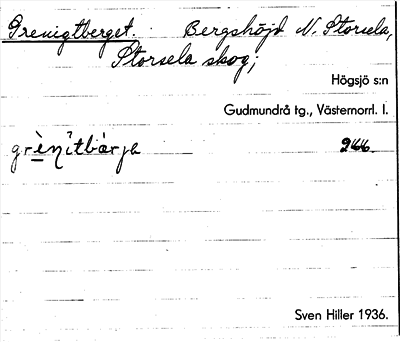 Grenigtberget. Bergshöjd N. Storsela,
Storsela skog;
Högsjö s:n
Gudmundrå tg., Västernorrl. l.
grènìtbàrja 244
Sven Hiller 1936.